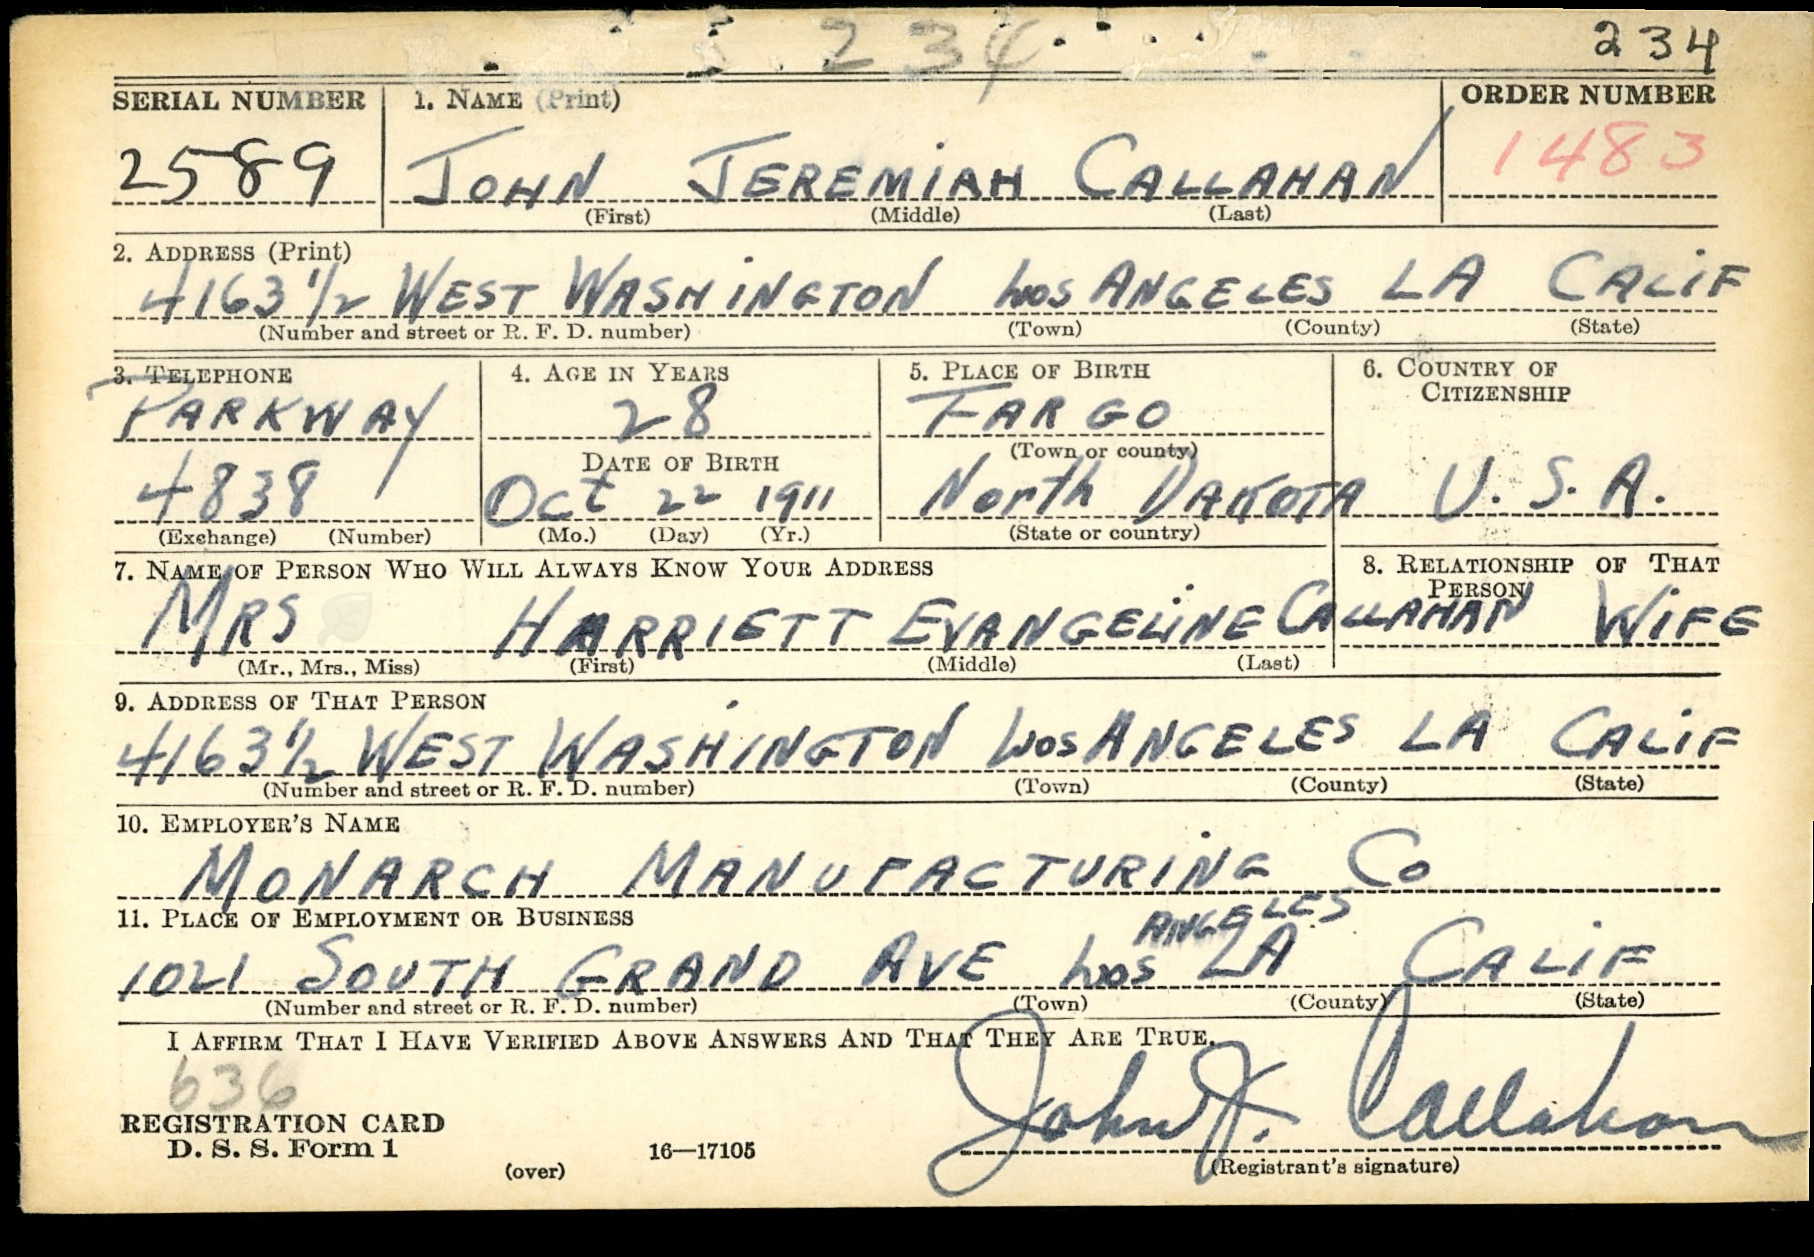 234
234
SERIAL NUMBER 1. NAME (Print) ORDER NUMBER
2589 JOHN JEREMIAH CALLAHAN 1483
(First) (Middle) (Last)
2. ADDRESS (Print)
4163 1/2 WEST WASHINGTON LOS ANGELES LA CALIF
(Number and street or R. F. D. number) (Town) (County) (State)
3. TELEPHONE 4. AGE IN YEARS 5. PLACE OF BIRTH 6. COUNTRY OF CITIZENSHIP
PARKWAY 28 FARGO
(Town or county)
DATE OF BIRTH
4838 Oct 22 1911 North DAKOTA U. S. A.
(Exchange) (Number) (Mo.) (Day) (Yr.) (State or country)
7. NAME OF PERSON WHO WILL ALWAYS KNOW YOUR ADDRESS 8. RELATIONSHIP OF THAT PERSON
MRS HARRIETT EVANGELINE CALLAHAN WIFE
(Mr., Mrs., Miss) (First) (Middle) (Last)
9. ADDRESS OF THAT PERSON
4163 1/2 WEST WASHINGTON LOS ANGELES LA CALIF
(Number and street or R. F. D. number) (Town) (County) (State)
10. EMPLOYER'S NAME
MONARCH MANUFACTURING Co
11. PLACE OF EMPLOYMENT OR BUSINESS
1021 SOUTH GRAND AVE LOS ANGELES LA CALIF
(Number and street or R. F. D. number) (Town) (County) (State)
I AFFIRM THAT I HAVE VERIFIED ABOVE ANSWERS AND THAT THEY ARE TRUE.
636
John J. Callahan
REGISTRATION CARD
D. S. S. Form 1 (over) 16—17105 (Registrant's signature)